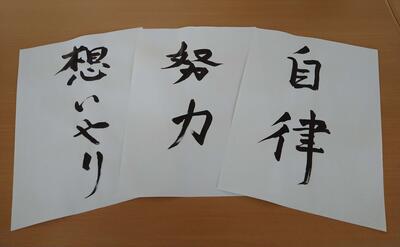 自律
努力
想いやり